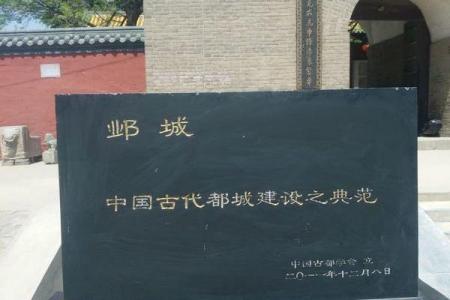 邺城
中国古代都城建设之典范
中国古都学会 立
二〇一一年十二月八日